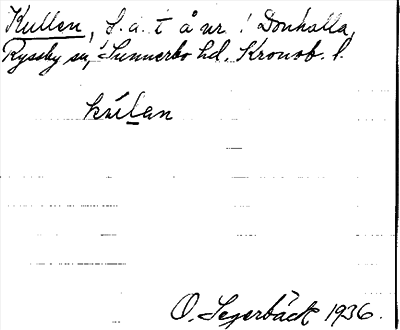 Kullen, f.a. t å nr 1 Donhalla,
Ryssby sn, Sunnerbo hd. Kronob. l.
kúlan
O. Segerbäck 1936.